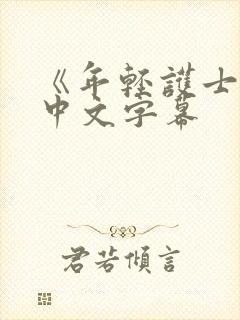 《年轻護士
中文字幕
君若傾言